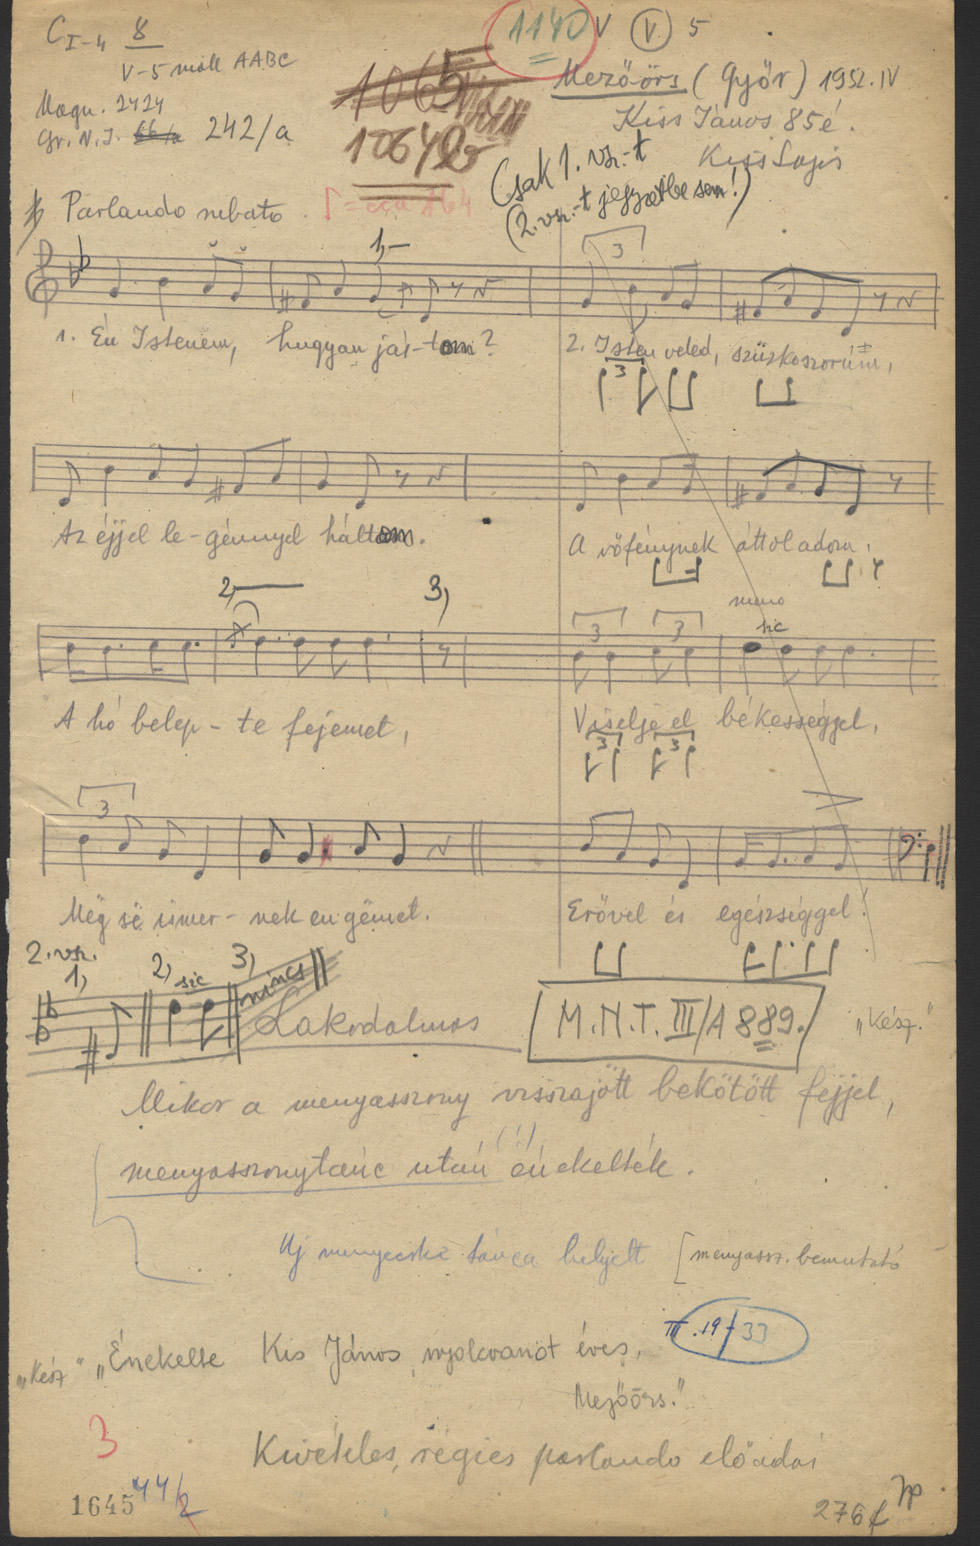 C I-4 8
V-5 moll AABC
Magn. 2424
Gr. N. I. 66/a 242/a
1065
1064
1140 V V 5
Mezőörs (Győr) 1952. IV
Kiss János 85é.
Kiss Lajos
Csak 1. vsz.-t
(2. vsz.-t jegyzetbe sem!)
Parlando rubato
1,
3
1. Én Istenem, hugyan jár-tom?
2. Isten veled, szűzkoszorúm,
3
Az éjjel le-génnyel háltam.
A vőfénynek áttol adom,
2, 3,
3 3
sic
A hó belep-te fejemet,
Viselje el békességgel,
3 3
3
Még së ismer-nek engëmet.
Erővel és egészséggel!
2. vsz.
1, 2, sic 3, nincs
Lakodalmas
M.N.T. III/A 889.
„Kész."
Mikor a menyasszony visszajött bekötött fejjel,
(!)
menyasszonytánc után énekelték.
Uj menyecske tánca helyett [menyassz. bemutató
III. 19/33
„Kész" „Énekelte Kis János nyolcvanöt éves,
Mezőörs."
3
Kivételes, régies parlando előadás
1645 44/2
276